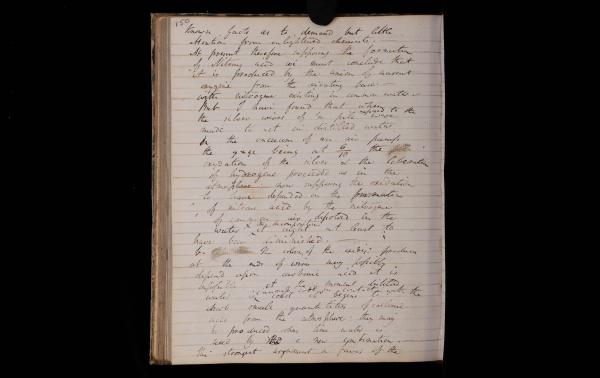 150
known facts as to demand but little
attention from enlightened chemists.
At present therefore supposing the formation
of Nitrous acid we must conclude that
it is produced by the union of nascent
oxygene from the oxidating bases
with nitrogene existing in common water –
But I have found that when
the silver wires of a pile were exposed to the
made to act on distilled water
in the vacuum of an air pump
the gage being at 6/10 the
oxydation of the silver & the liberation
of hydrogene proceeded as in the
atmosphere: now supposing the oxidation
to have depended on the formation
of nitrous acid by the nitrogene
of common air dissolved in the
water & its decomposition it ought at least to
have been diminished. –
The colour of the oxides produced
at the ends of wires may possibly
depend upon carbonic acid it is
impossible at the moment distilled
water is cool it begins to
absorb small quantities of carbonic
acid from the atmosphere: they may
be produced when lime water is
used by a new combination. –
the strongest argument in favor of the